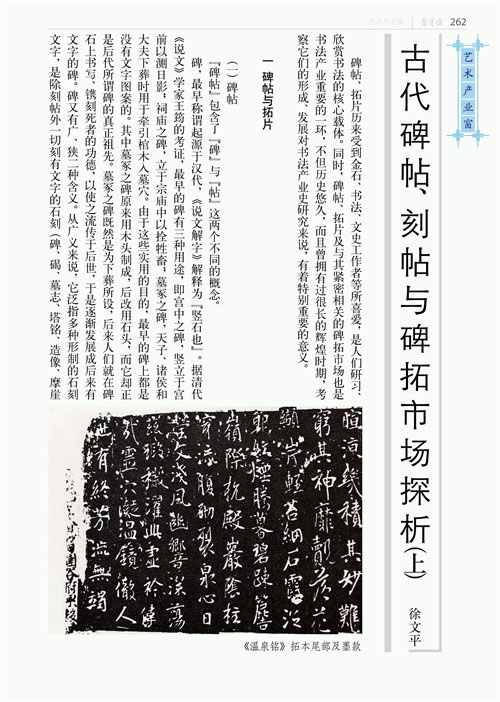 262
艺术产业
古代碑帖、刻帖与碑拓市场探析(上)
徐文平
碑帖、拓片历来受到金石、书法、文史工作者等所喜爱,是人们研习、
欣赏书法的核心载体。同时,碑帖、拓片及与其紧密相关的碑拓市场也是
书法产业重要的一环,不但历史悠久,而且曾拥有过很长的辉煌时期,考
察它们的形成、发展对书法产业史研究来说,有着特别重要的意义。
一 碑帖与拓片
(一)碑帖
『碑帖』包含了『碑』与『帖』这两个不同的概念。
碑,最早称谓起源于汉代,《说文解字》解释为『竖石也』。据清代
《说文》学家王筠的考证,最早的碑有三种用途,即宫中之碑,竖立于宫
前以测日影;祠庙之碑,立于宗庙中以拴牲畜;墓冢之碑,天子、诸侯和
大夫下葬时用于牵引棺木入墓穴。由于这些实用的目的,最早的碑上都是
没有文字图案的。其中墓冢之碑原来用木头制成,后改用石头,而它却正
是后代所谓碑的真正祖先。墓冢之碑既然是为下葬所设,后来人们就在碑
石上书写、镌刻死者的功德,以使之流传于后世,于是逐渐发展成后来有
文字的碑。碑又有广、狭二种含义。从广义来说,它泛指多种形制的石刻
文字,是除刻帖外一切刻有文字的石刻(碑、碣、墓志、塔铭、造像、摩崖
幾積其妙難
窮其神靡測落花
纈岸輕苔網石霞泛
朝紅煙騰暮碧疎簷
嶺際抗殿巖陰柱
穿流腹砌裂泉心日
瑩波淺風幽響深蕩
兹瑕穢濯此虚衿偉
哉靈穴凝温鏡徹人
世有終芳流無竭
《温泉铭》拓本尾部及墨款